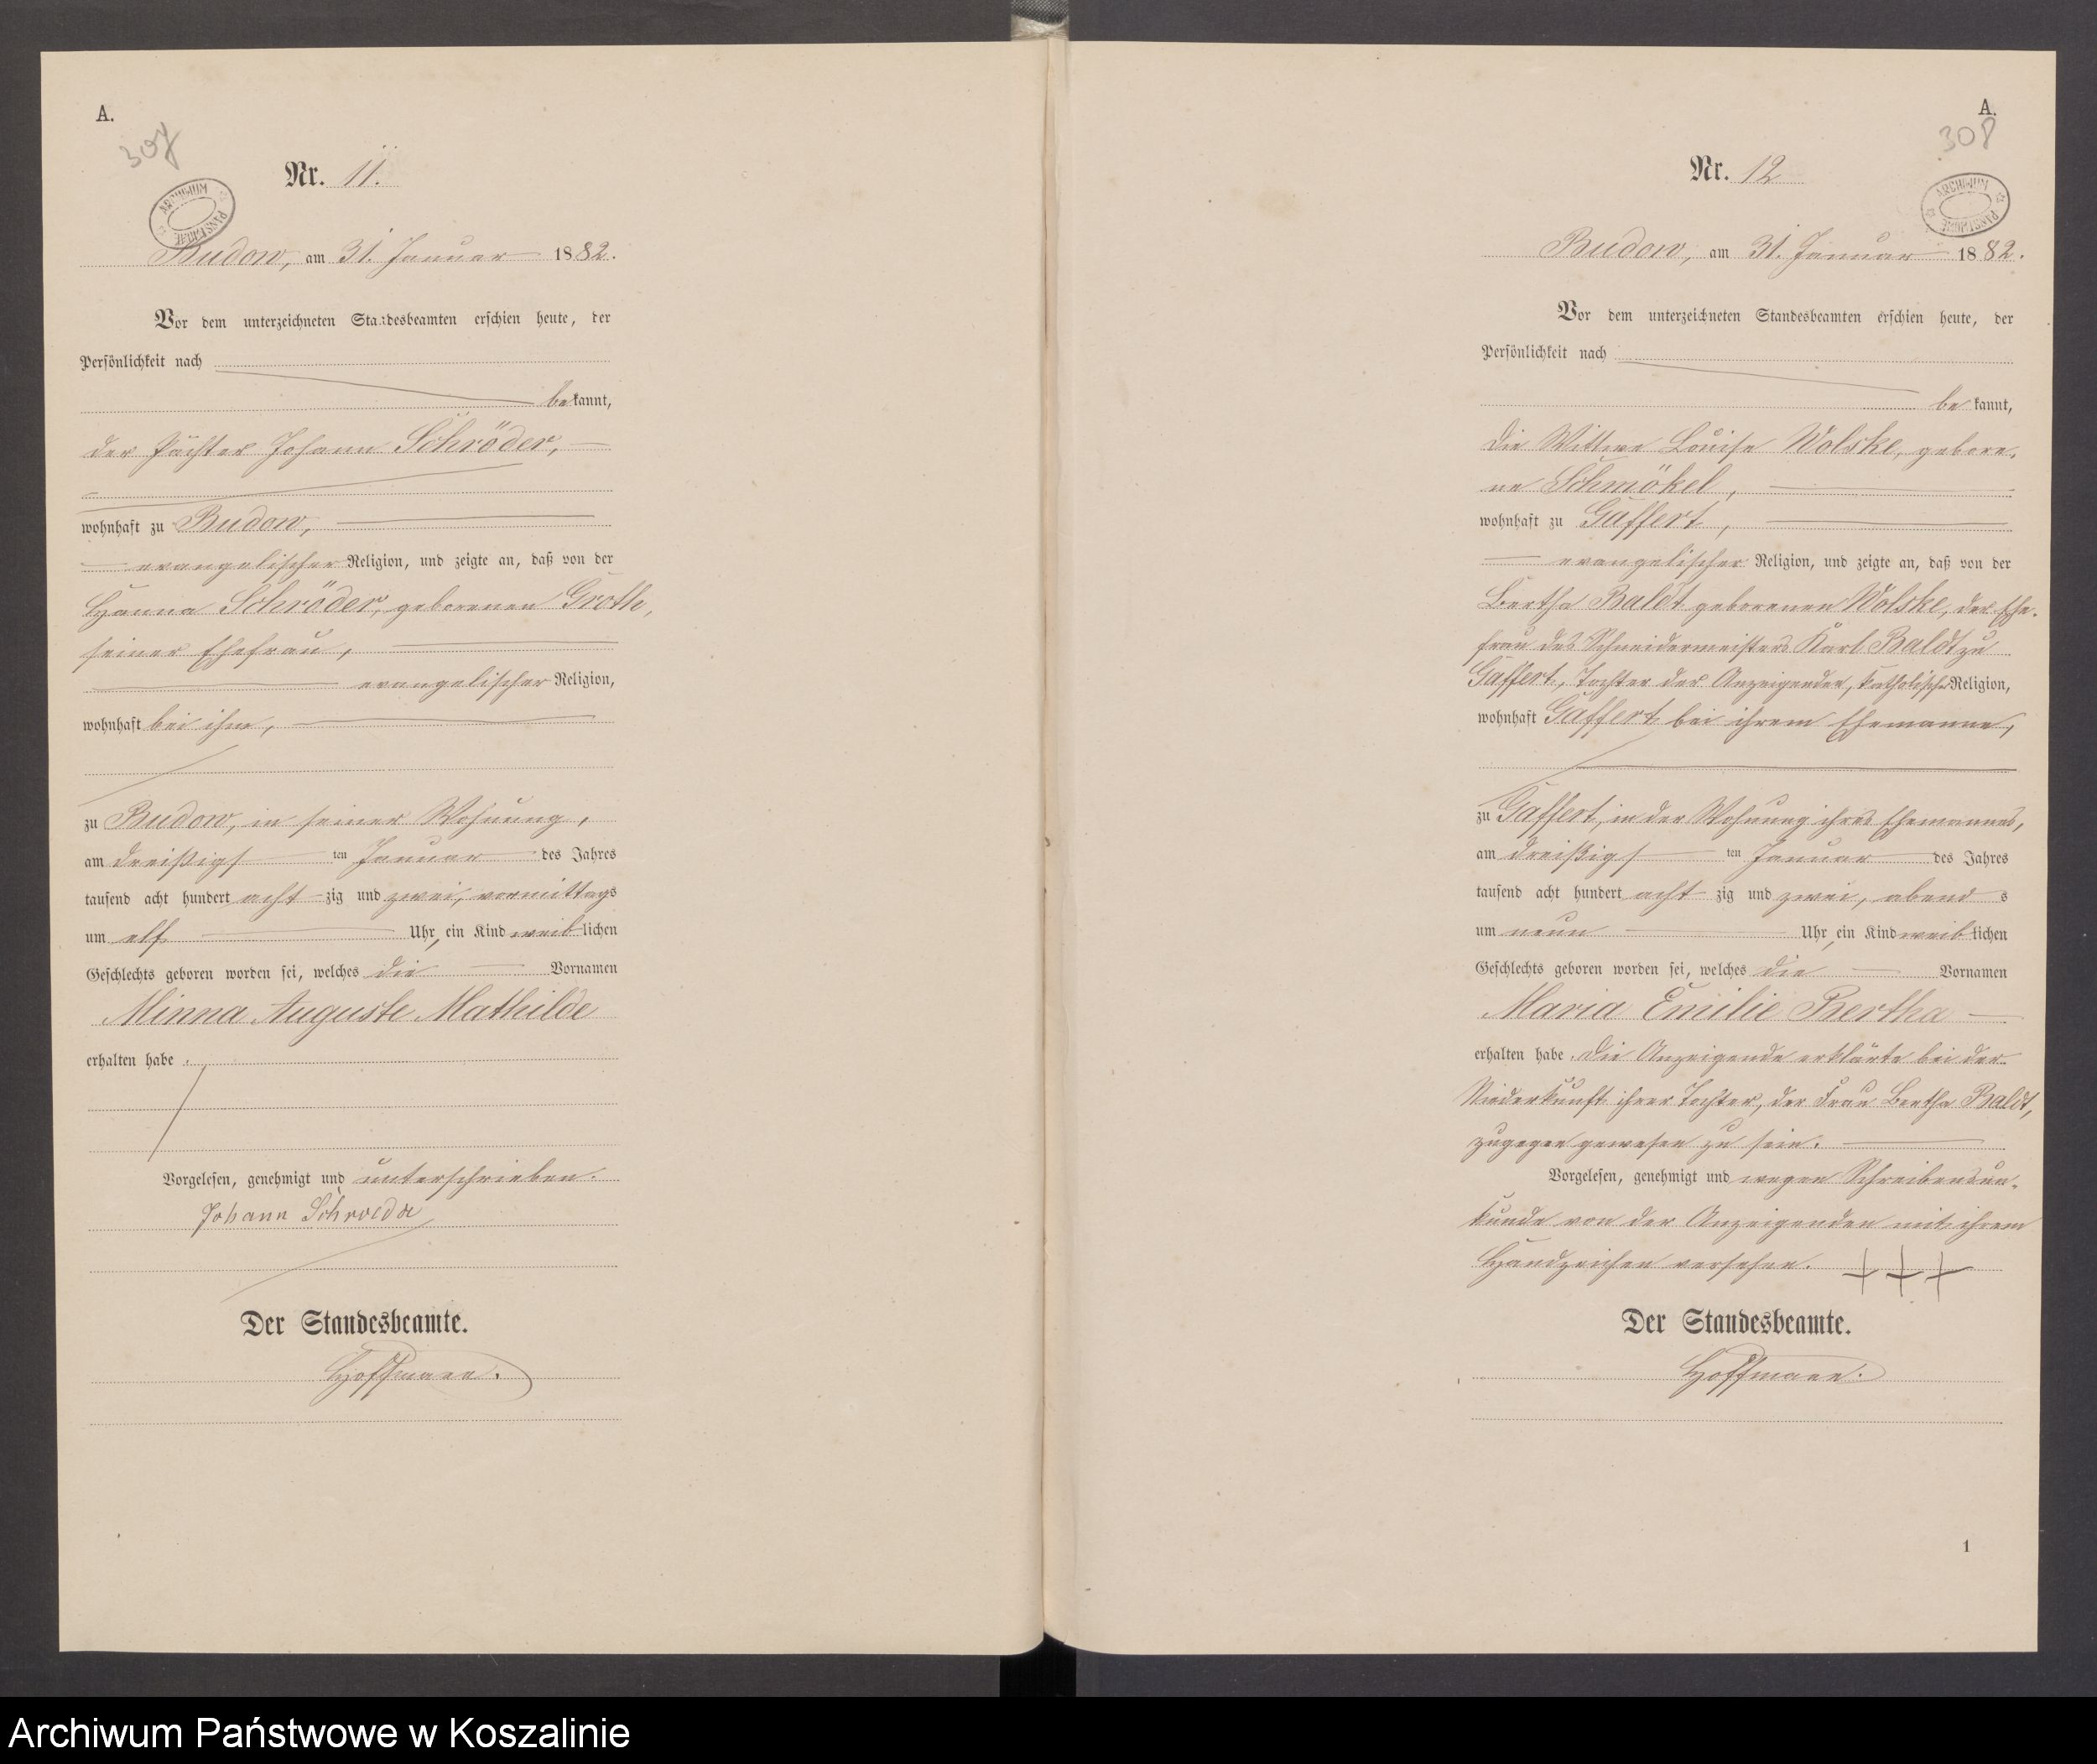 A.
307
Nr. 11.
ARCHIWUM PAŃSTWOWE
Budow, am 31. Januar 1882.
Vor dem unterzeichneten Standesbeamten erschien heute, der
Persönlichkeit nach
bekannt,
der Pächter Johann Schröder,
wohnhaft zu Budow,
evangelischer Religion, und zeigte an, daß von der
Hanna Schröder, geborenen Groth,
seiner Ehefrau,
evangelischer Religion,
wohnhaft bei ihm,
zu Budow, in seiner Wohnung,
am dreißigsten Januar des Jahres
tausend acht hundert achtzig und zwei, vormittags
um elf Uhr, ein Kind weiblichen
Geschlechts geboren worden sei, welches die Vornamen
Minna Auguste Mathilde
erhalten habe.
Vorgelesen, genehmigt und unterschrieben.
Johann Schroeder
Der Standesbeamte.
Hoffmann.
A.
308
Nr. 12
ARCHIWUM PAŃSTWOWE
Budow, am 31. Januar 1882.
Vor dem unterzeichneten Standesbeamten erschien heute, der
Persönlichkeit nach
bekannt,
die Wittwe Louise Wolske, gebore-
ne Schmökel,
wohnhaft zu Gaffert,
evangelischer Religion, und zeigte an, daß von der
Bertha Baldt geborenen Wolske, der Ehe-
frau des Schneidermeisters Karl Baldt zu
Gaffert, Tochter der Anzeigenden, katholischer Religion,
wohnhaft Gaffert bei ihrem Ehemanne,
zu Gaffert, in der Wohnung ihres Ehemannes,
am dreißigsten Januar des Jahres
tausend acht hundert achtzig und zwei, abends
um neun Uhr, ein Kind weiblichen
Geschlechts geboren worden sei, welches die Vornamen
Maria Emilie Bertha
erhalten habe. Die Anzeigende erklärte bei der
Niederkunft ihrer Tochter, der Frau Bertha Baldt,
zugegen gewesen zu sein.
Vorgelesen, genehmigt und wegen Schreibensun-
kunde von der Anzeigenden mit ihrem
Handzeichen versehen. +++
Der Standesbeamte.
Hoffmann.
1
Archiwum Państwowe w Koszalinie